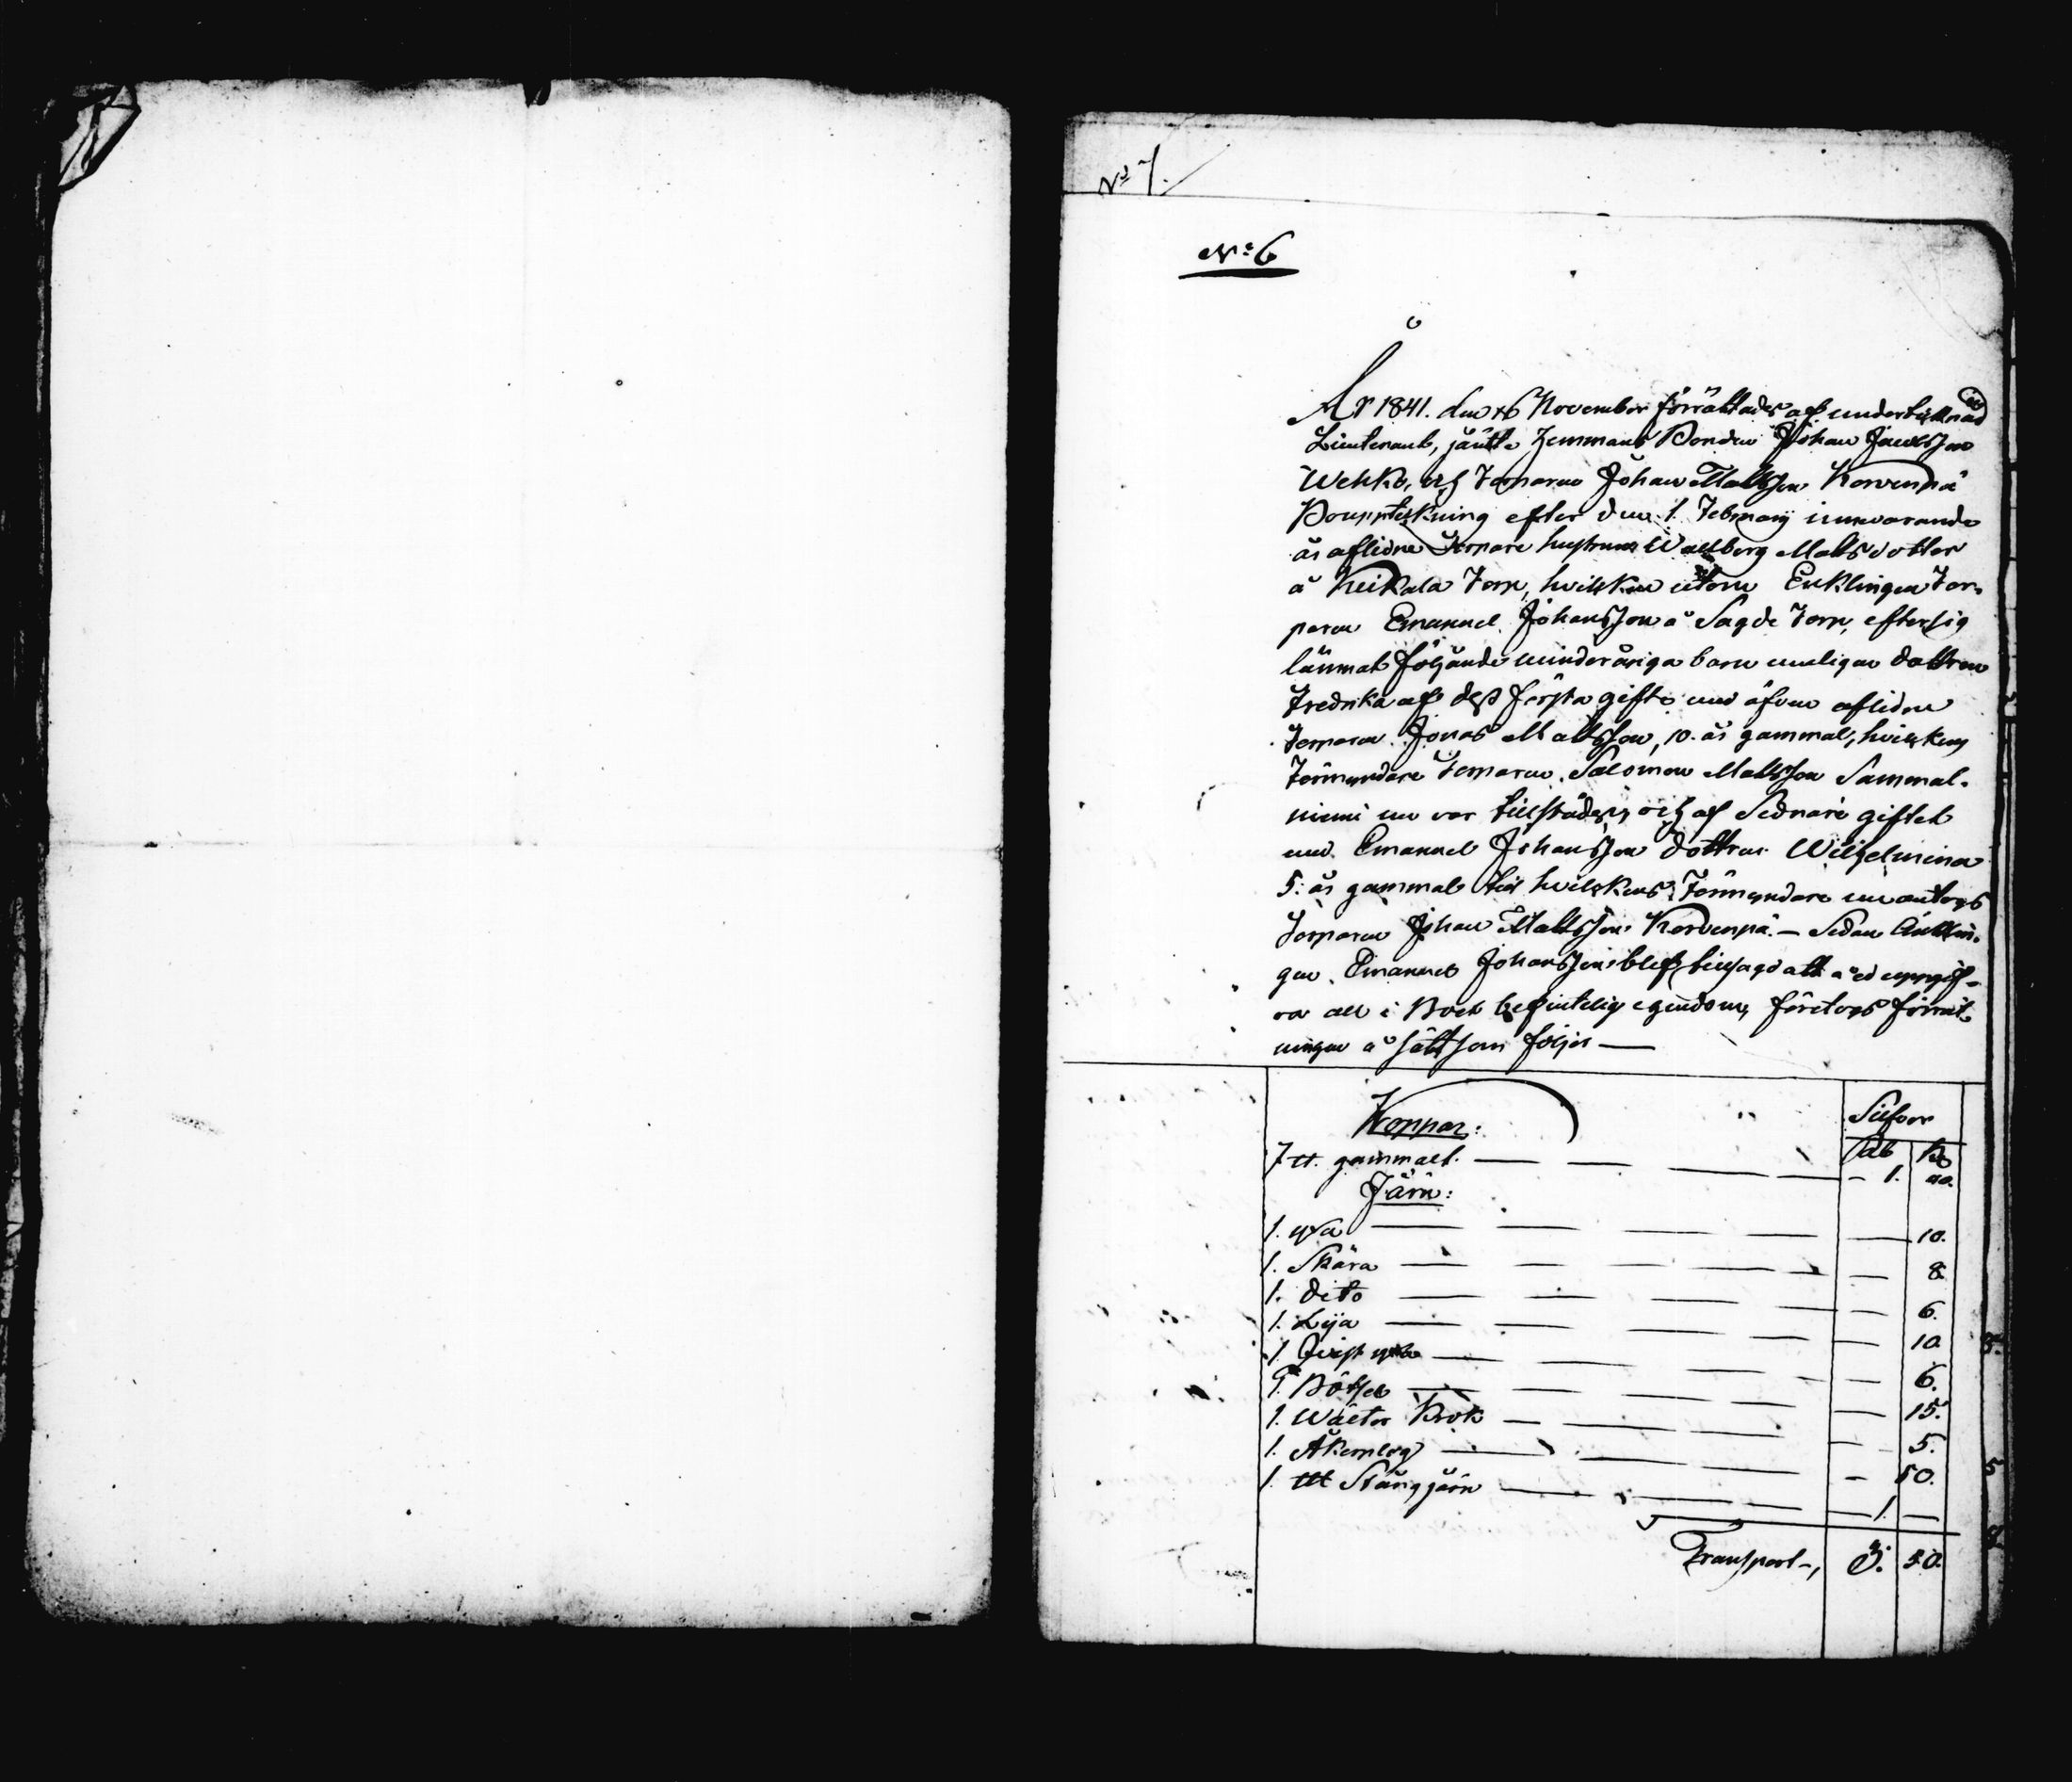 No 7.
No 6
År 1841. den 16 November förrättades af undertecknad
Lieutenant, jämte Hemmans Bonden Johan Jacobsson
Wehko, och Torparen Johan Mattsson Korvenpä
Bouppteckning efter den 1. Februarij innevarande
år aflidne Torpare hustrun Wallborg Mattsdotter
å Keikala Torp, hvilken utom Enklingen Tor-
paren Emanuel Johansson å Sagde Torp, efter sig
lämnat följande minderåriga barn nemligen dottren
Fredrika af dess första gifte med äfven aflidne
Torparen Jonas Mattsson, 10. år gammal, hvilkens
Förmyndare Torparen Salomon Mattsson Sammal-
niemi nu var tillstädes, och af Sednare giftet
med Emanuel Johansson dottren Wilhelmina
5. år gammal för hvilkens Förmyndare nu antogs
Torparen Johan Mattsson Korvenpä. — Sedan Enklin-
gen Emanuel Johansson blef tillsagd att ed uppgif-
va all i Boet befintelig egendom, företogs förrätt-
ningen å sätt som följer —
Koppar:
Silfver
Rub K
7 ℔. gammalt. — 1. 40.
Järn:
1. yxa — 10.
1. Skära — 8.
1. dito — 6.
1. Lija — 10.
1 — 6.
1. — 15.
1. Krok — 5.
1. Åkerplog — 50.
1. Stångjärn — 1. —
Transport, 3. 50.